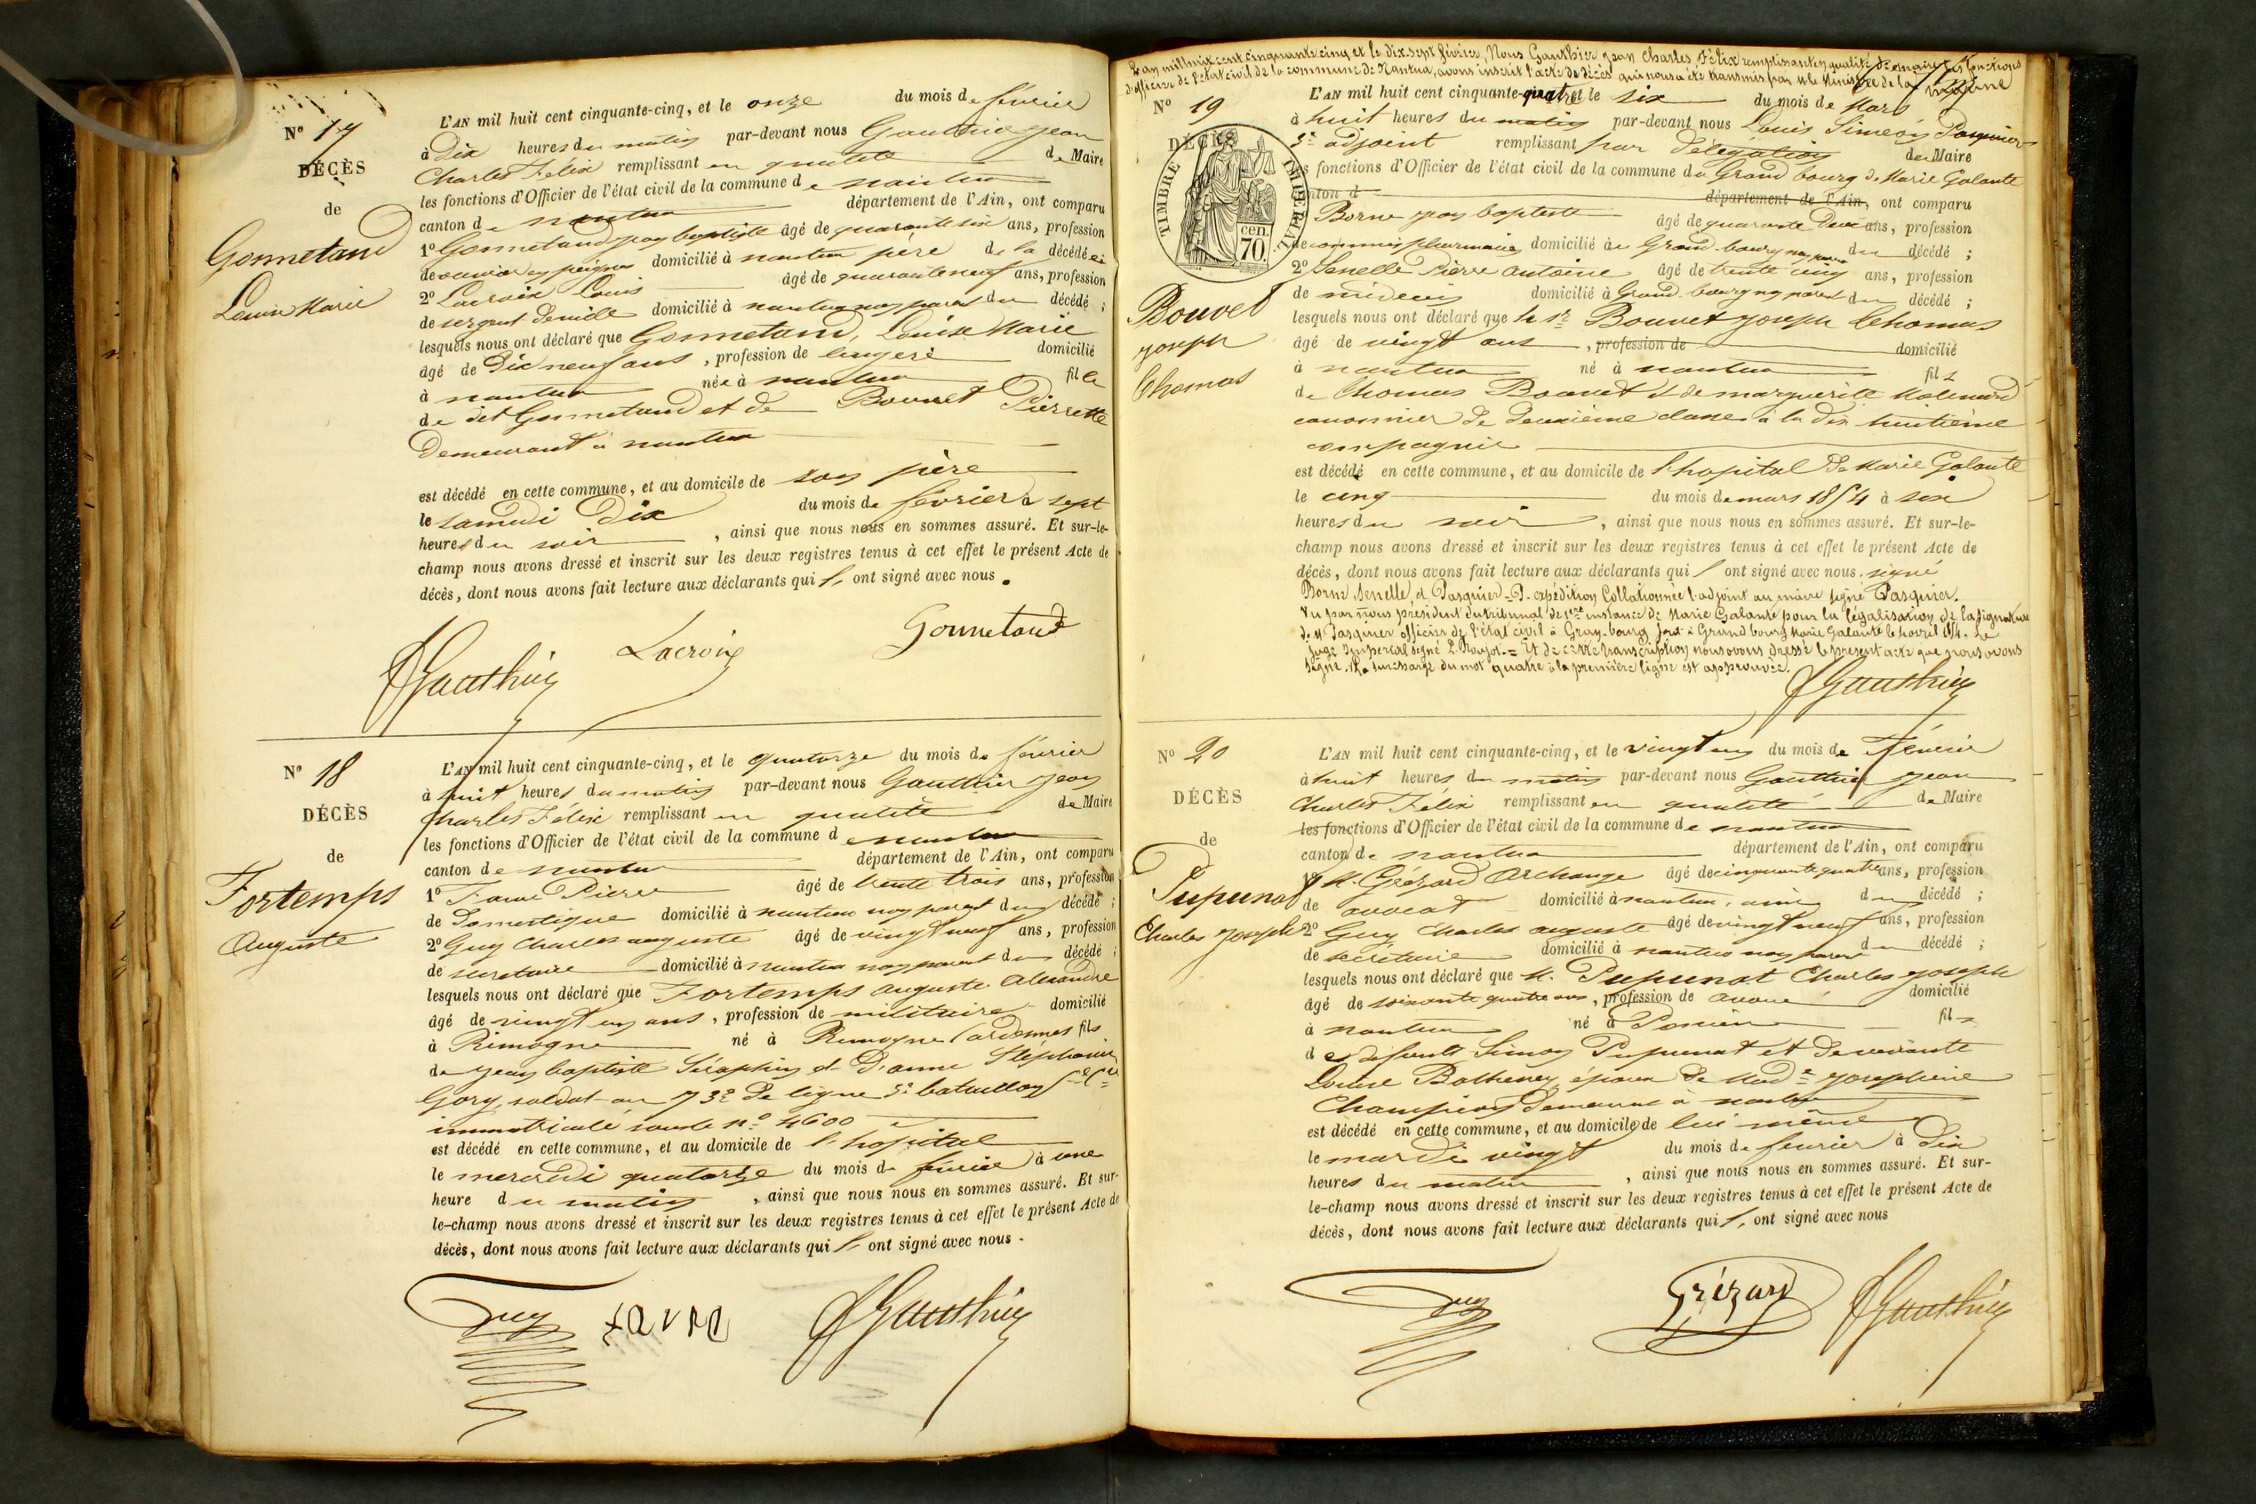 N° 17
DÉCÈS
de
Gonnetand
Louise Marie
L'AN mil huit cent cinquante-cinq, et le onze du mois de février
à Dix heures du matin par-devant nous Gauthier Jean
Charles Félix remplissant en qualité de Maire
les fonctions d'Officier de l'état civil de la commune de nantua
canton de nantua département de l'Ain, ont comparu
1° Gonnetand jean baptiste âgé de quarante six ans, profession
de ouvrier en peignes domicilié à nantua père de la décédée
2° Lacroix Louis âgé de quarante neuf ans, profession
de sergent de ville domicilié à nantua non parent du décédé ;
lesquels nous ont déclaré que Gonnetand, Louise Marie
âgé de Dix neuf ans, profession de lingère domicilié
à nantua née à nantua fille
de dit Gonnetand et de Bouvet Pierrette
Demeurant à nantua
est décédé en cette commune, et au domicile de son père
le samedi Dix du mois de février à sept
heures du soir, ainsi que nous nous en sommes assuré. Et sur-le-
champ nous avons dressé et inscrit sur les deux registres tenus à cet effet le présent Acte de
décès, dont nous avons fait lecture aux déclarants qui ont signé avec nous.
Gauthier Lacroix Gonnetand
N° 18
DÉCÈS
de
Fortemps
Auguste
L'AN mil huit cent cinquante-cinq, et le quatorze du mois de février
à huit heures du matin par-devant nous Gauthier Jean
Charles Félix remplissant en qualité de Maire
les fonctions d'Officier de l'état civil de la commune de nantua
canton de nantua département de l'Ain, ont comparu
1° Pierre âgé de trente trois ans, profession
de Domestique domicilié à nantua non parent du décédé ;
2° Guy Charles auguste âgé de vingt neuf ans, profession
de secretaire domicilié à nantua non parent du décédé ;
lesquels nous ont déclaré que Fortemps auguste alexandre
âgé de vingt un ans, profession de militaire domicilié
à Rimogne né à Rimogne (ardennes fils
de jean baptiste Séraphin et D'anne Stéphanie
Gory, soldat au 73e De ligne 3e bataillon
immatriculé sous le n° 4600
est décédé en cette commune, et au domicile de l'hopital
le mercredi quatorze du mois de février à une
heure du matin, ainsi que nous nous en sommes assuré. Et sur-
le-champ nous avons dressé et inscrit sur les deux registres tenus à cet effet le présent Acte de
décès, dont nous avons fait lecture aux déclarants qui ont signé avec nous.
Guy Gauthier
L'an mil huit cent cinquante cinq et le dix sept février, Nous Gauthier Jean Charles Félix remplissant en qualité de maire les fonctions
d'officier de l'état civil de la commune de Nantua, avons inscrit l'acte de décès qui nous a été transmis par M. le Ministre de la marine
N° 19
DÉCÈS
TIMBRE IMPERIAL
70 cen.
Bouvet
joseph
Thomas
L'AN mil huit cent cinquante-quatre et le six du mois de Mars
à huit heures du matin par-devant nous Louis Siméon Pasquier
adjoint remplissant par Délégation de Maire
les fonctions d'Officier de l'état civil de la commune du Grand bourg de Marie Galante
canton d département de l'Ain, ont comparu
Borne jean baptiste âgé de quarante Deux ans, profession
de commis pharmacien domicilié au Grand-bourg non parent du décédé ;
2° Senelle Pierre antoine âgé de trente cinq ans, profession
de médecin domicilié à Grand-bourg non parent du décédé ;
lesquels nous ont déclaré que le sr Bouvet joseph Thomas
âgé de vingt ans, profession de domicilié
à nantua né à nantua fils
de Thomas Bouvet et de marguerite
canonnier De Deuxième classe à la dix huitième
compagnie
est décédé en cette commune, et au domicile de l'hopital De Marie Galante
le cinq du mois de mars 1854 à six
heures du soir, ainsi que nous nous en sommes assuré. Et sur-le-
champ nous avons dressé et inscrit sur les deux registres tenus à cet effet le présent Acte de
décès, dont nous avons fait lecture aux déclarants qui ont signé avec nous. signé
Borne Senelle, et Pasquier - P. expédition Collationnée l'adjoint au maire signé Pasquier.
Vu par nous président du tribunal de 1ère instance de Marie Galante pour la légalisation de la signature
de M Pasquier officier de l'état civil à Grand-bourg Grand bourg Marie Galante le avril 1854. Le
juge Impérial signé L. Roujot. = Et de cette transcription nous avons dressé le présent acte que nous avons
signé. La surcharge du mot quatre à la première ligne est approuvée.
Gauthier
N° 20
DÉCÈS
de
Pupunat
Charles joseph
L'AN mil huit cent cinquante-cinq, et le vingt un du mois de Février
à huit heures du matin par-devant nous Gauthier Jean
Charles Félix remplissant en qualité de Maire
les fonctions d'Officier de l'état civil de la commune de nantua
canton de nantua département de l'Ain, ont comparu
1° M. Grézard Archange âgé de cinquante quatre ans, profession
de avocat domicilié à nantua, ami du décédé ;
2° Guy Charles auguste âgé de vingt neuf ans, profession
de secrétaire domicilié à nantua non parent du décédé ;
lesquels nous ont déclaré que M. Pupunat Charles joseph
âgé de soixante quatre ans, profession de avoué domicilié
à nantua né à Poncin fils
de défunt Simon Pupunat et De vivante
Louise époux De Made josephine
Champion Demeurant à nantua
est décédé en cette commune, et au domicile de lui même
le mardi vingt du mois de fevrier à Dix
heures du matin, ainsi que nous nous en sommes assuré. Et sur-
le-champ nous avons dressé et inscrit sur les deux registres tenus à cet effet le présent Acte de
décès, dont nous avons fait lecture aux déclarants qui ont signé avec nous
Guy Grézard Gauthier